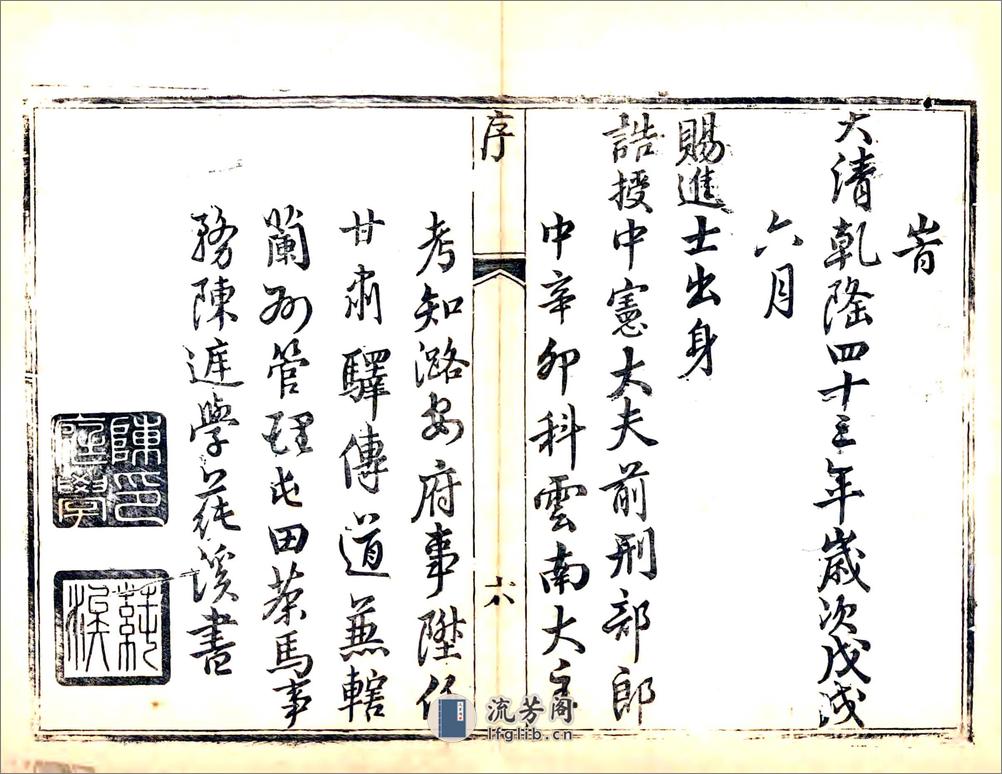 峕
大清乾隆四十三年歲次戊戌
六月
賜進士出身
誥授中憲大夫前刑部郎
中辛卯科雲南大主
序
六
考知潞安府事陞任
甘肅驛傳道兼轄
蘭州管理屯田茶馬事
務陳庭學莼溪書
陳印庭學
莼溪
流芳阁
lfglib.cn